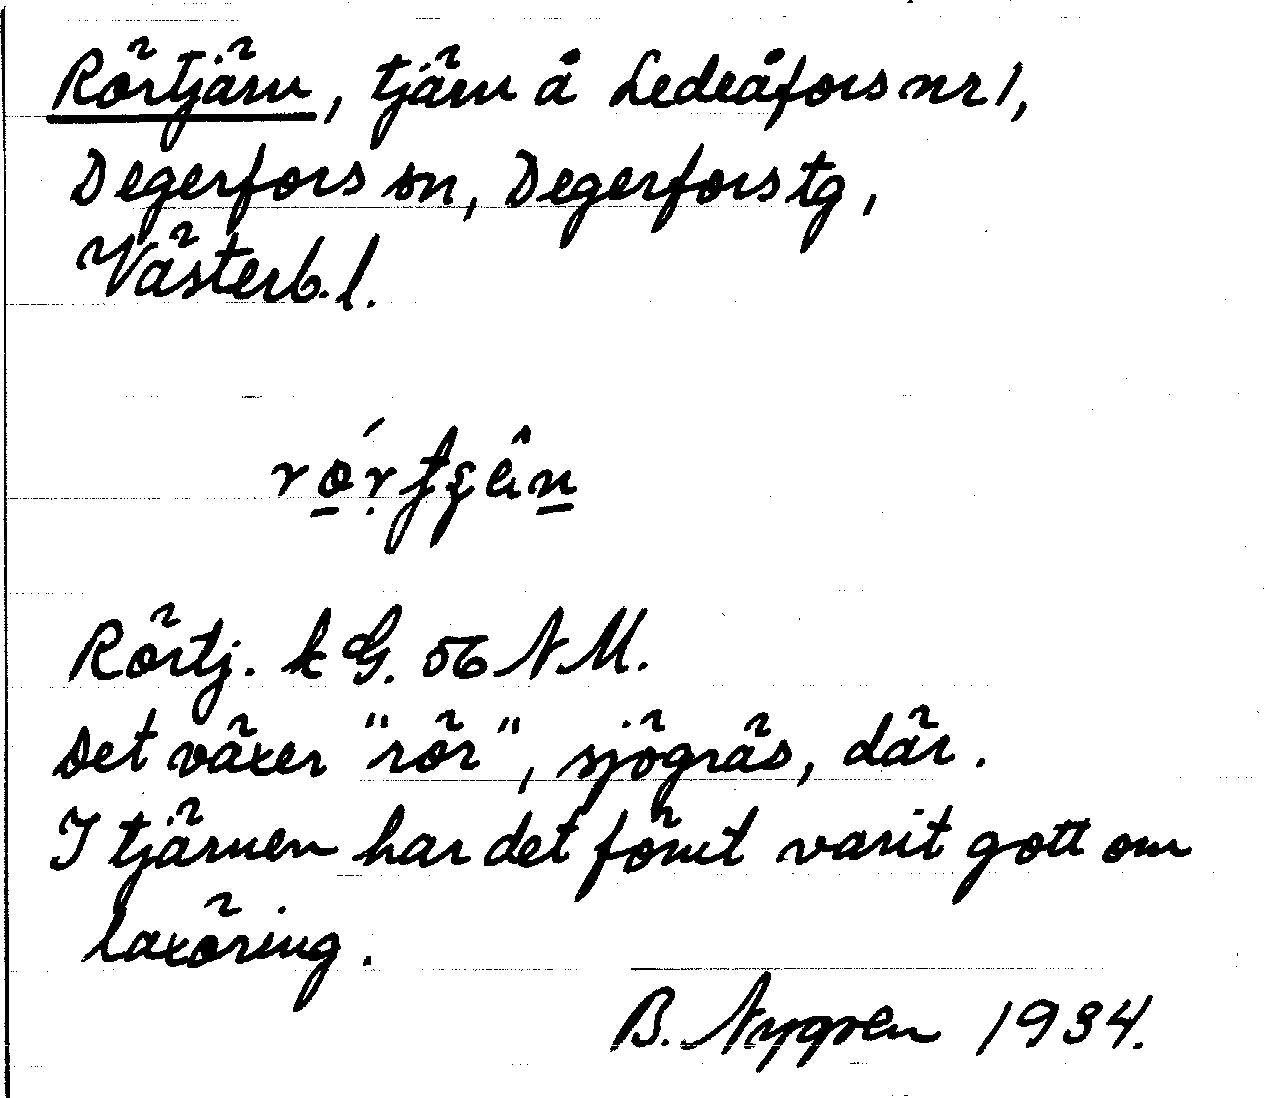 Rörtjärn, tjärn å Ledeåfors nr 1,
Degerfors sn, Degerfors tg,
Västerb. l.
Rörtj. k G. 56 N M.
Det växer "rör", sjögräs, där.
I tjärnen har det förut varit gott om
laxöring.
B. Nygren 1934.